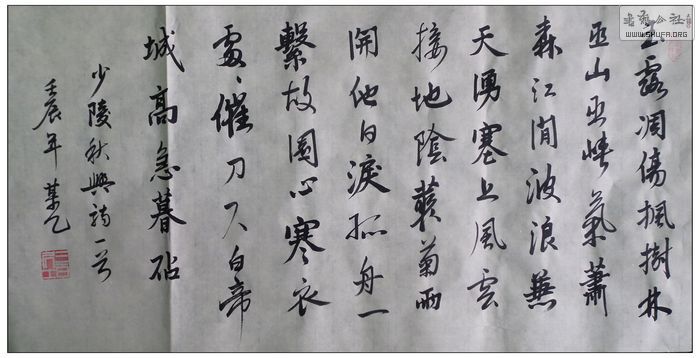 玉露凋傷楓樹林
巫山巫峽氣蕭
森江間波浪兼
天湧塞上風雲
接地陰藂菊兩
開他日淚孤舟一
繫故園心寒衣
處〻催刀尺白帝
城高急暮砧
少陵秋興詩一首
壬辰年
公社
WWW.SHUFA.ORG